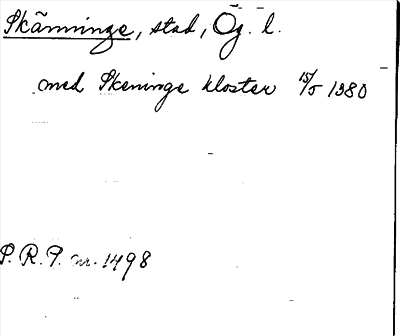 Skänninge, stad, Ög. l.
med Skeninge kloster 15/5 1380
P.R.P. nr. 1498